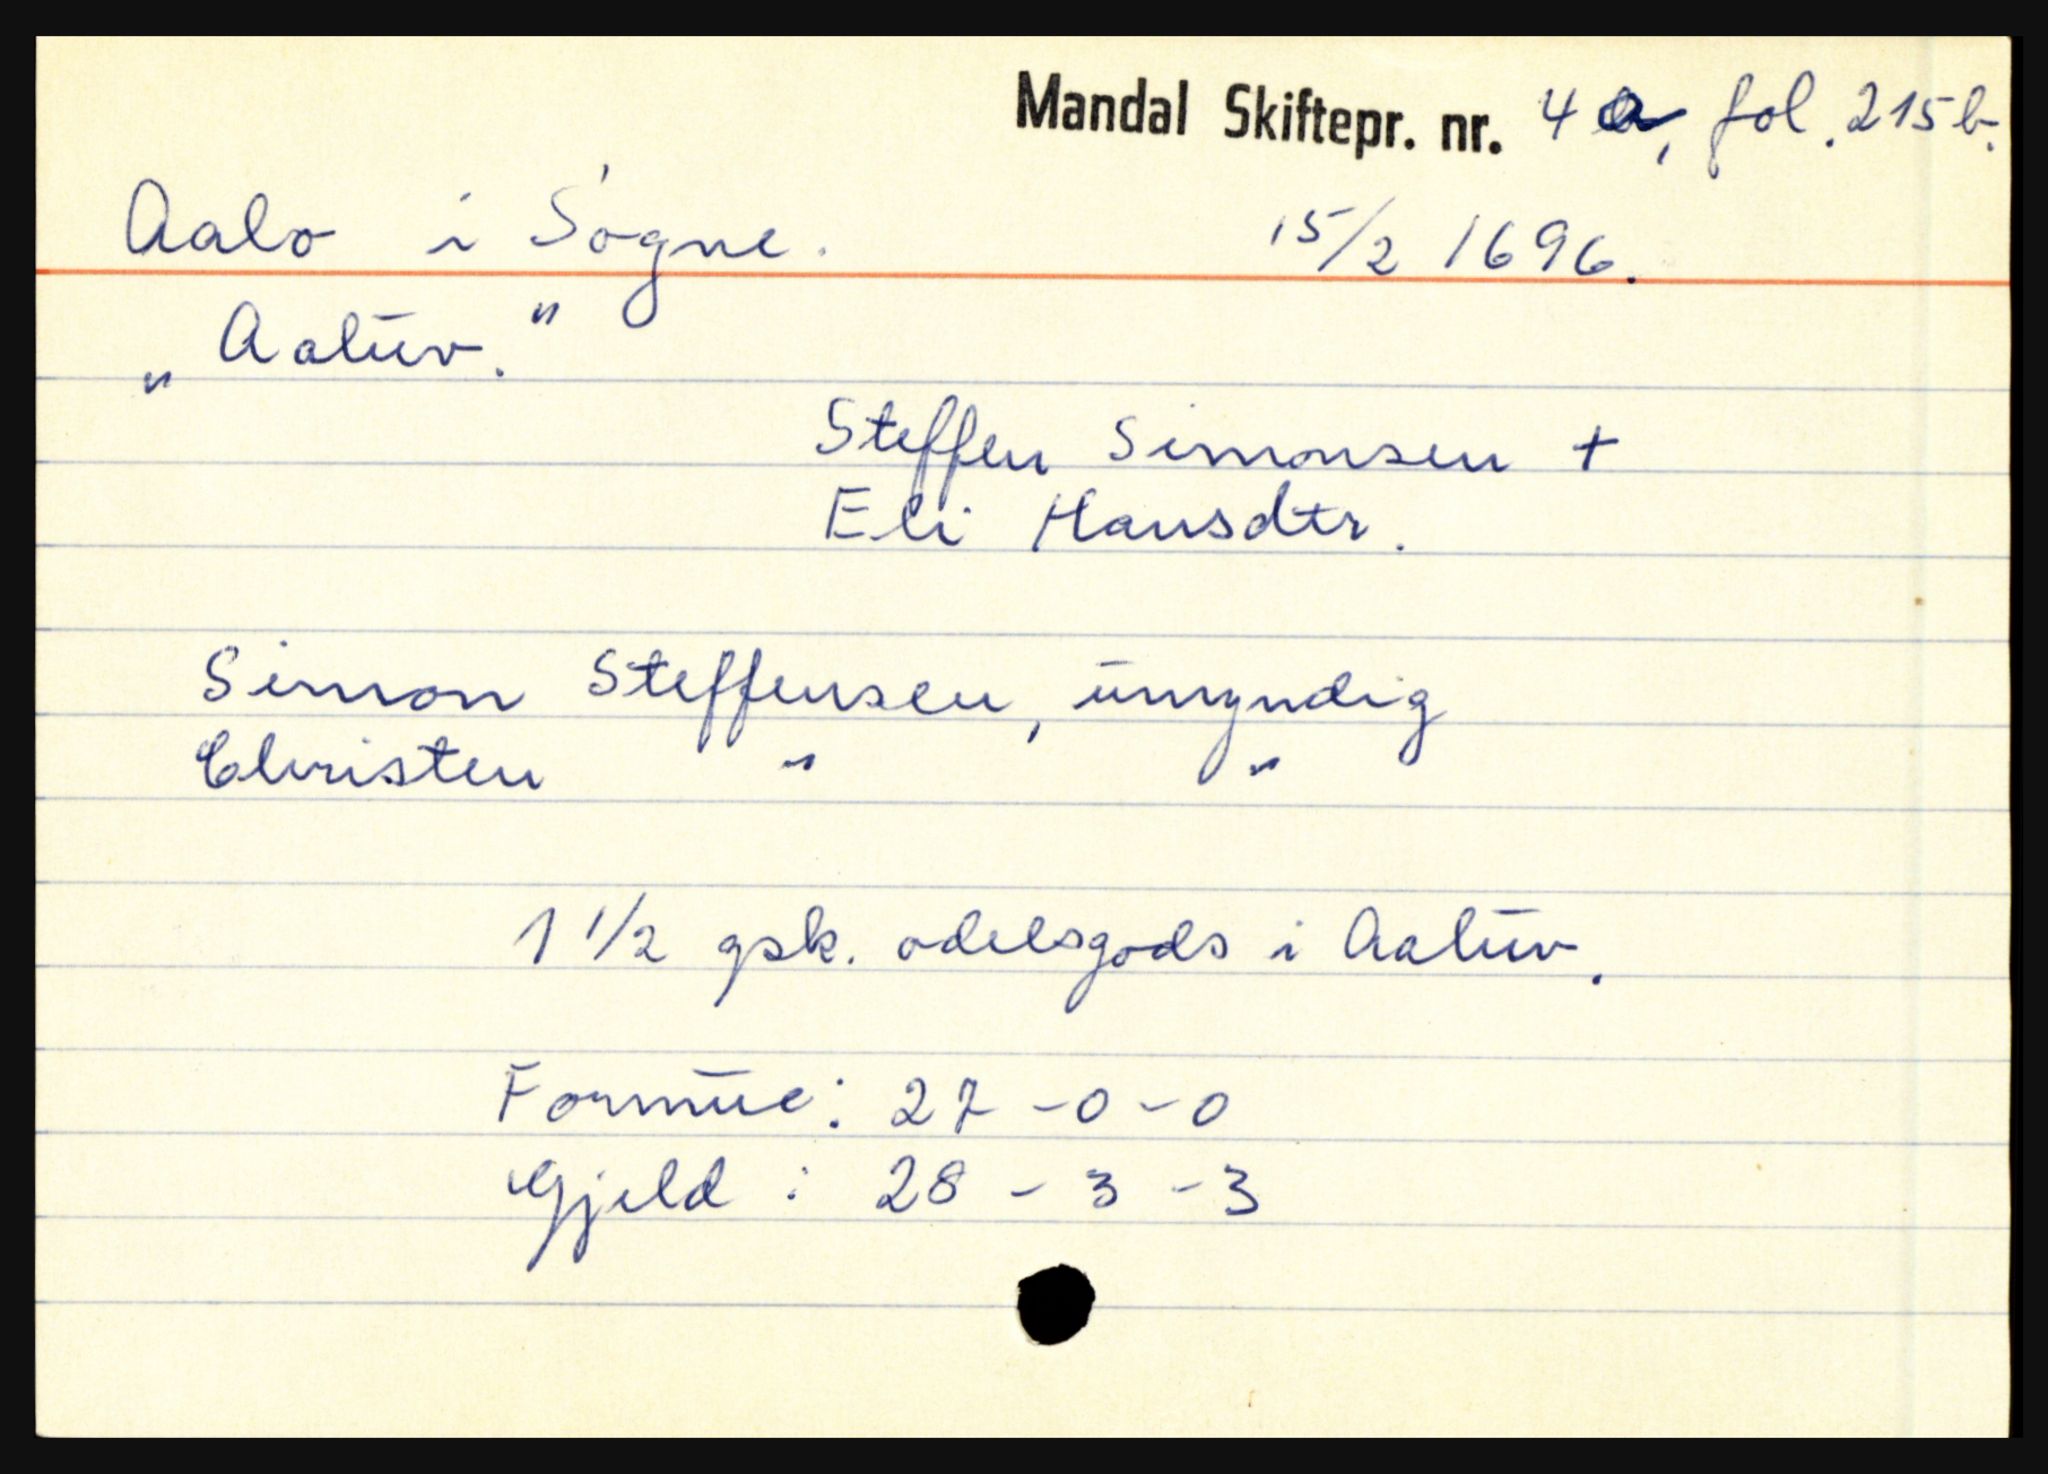 Mandal Skiftepr. nr. 4 a, fol. 215 b.
Aalo i Søgne. 15/2 1696.
„ Aaluv. "
Steffen Simonsen +
Eli Hansdtr.
Simon Steffensen, umyndig
Christen " "
1 1/2 gsk. odelsgods i Aaluv.
Formue: 27 - 0 - 0
Gjeld : 28 - 3 - 3